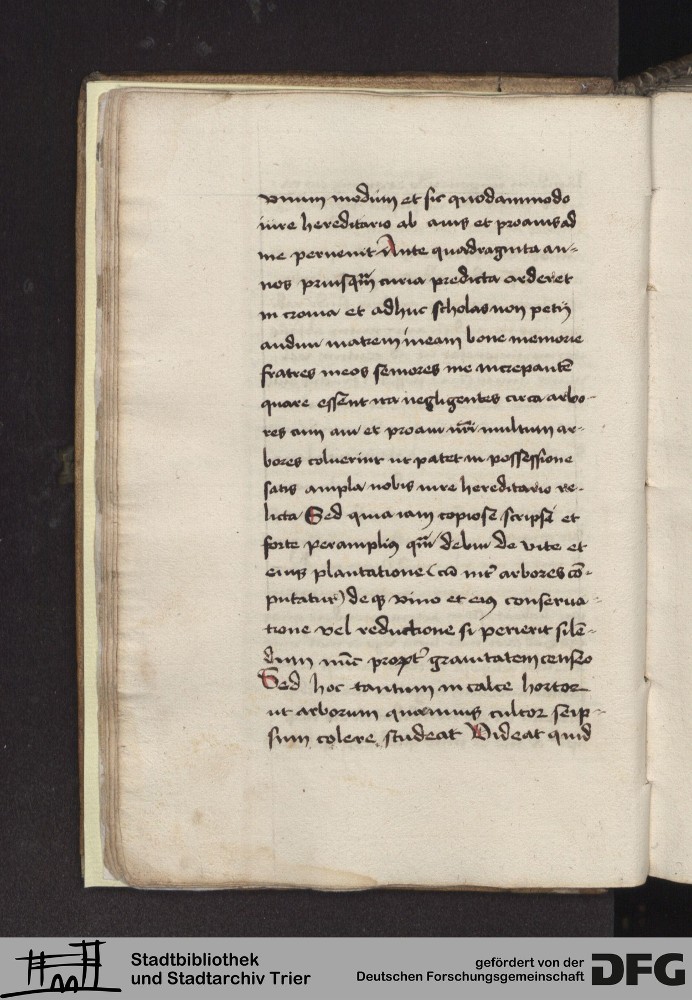 vnum modum et sic quodammodo
iure hereditario ab auis et proauis ad
me peruenit Ante quadraginta an-
nos priusqͣm curia predicta arderet
in crouia et adhuc scholas non petij
audiui matrem meam bone memorie
fratres meos seniores me increpantē
quare essent ita negligentes circa arbo-
res cum aui et proaui nr̄i multum ar-
bores coluerint ut patet in possessione
satis ampla nobis iure hereditario re-
licta Sed quia iam copiose scripsi et
forte peramplius qͣm debui de vite et
eius plantatione (cū int̄ arbores cō-
putatur) de vino et eius conserua-
tione vel reductione si perierit silē-
dum nūc propt̄ grauitatem censeo
Sed hoc tantum in calce hortor
ut arborum quamuis cultor seip-
sum colere studeat Videat quid
Stadtbibliothek
und Stadtarchiv Trier
gefördert von der
Deutschen Forschungsgemeinschaft
DFG